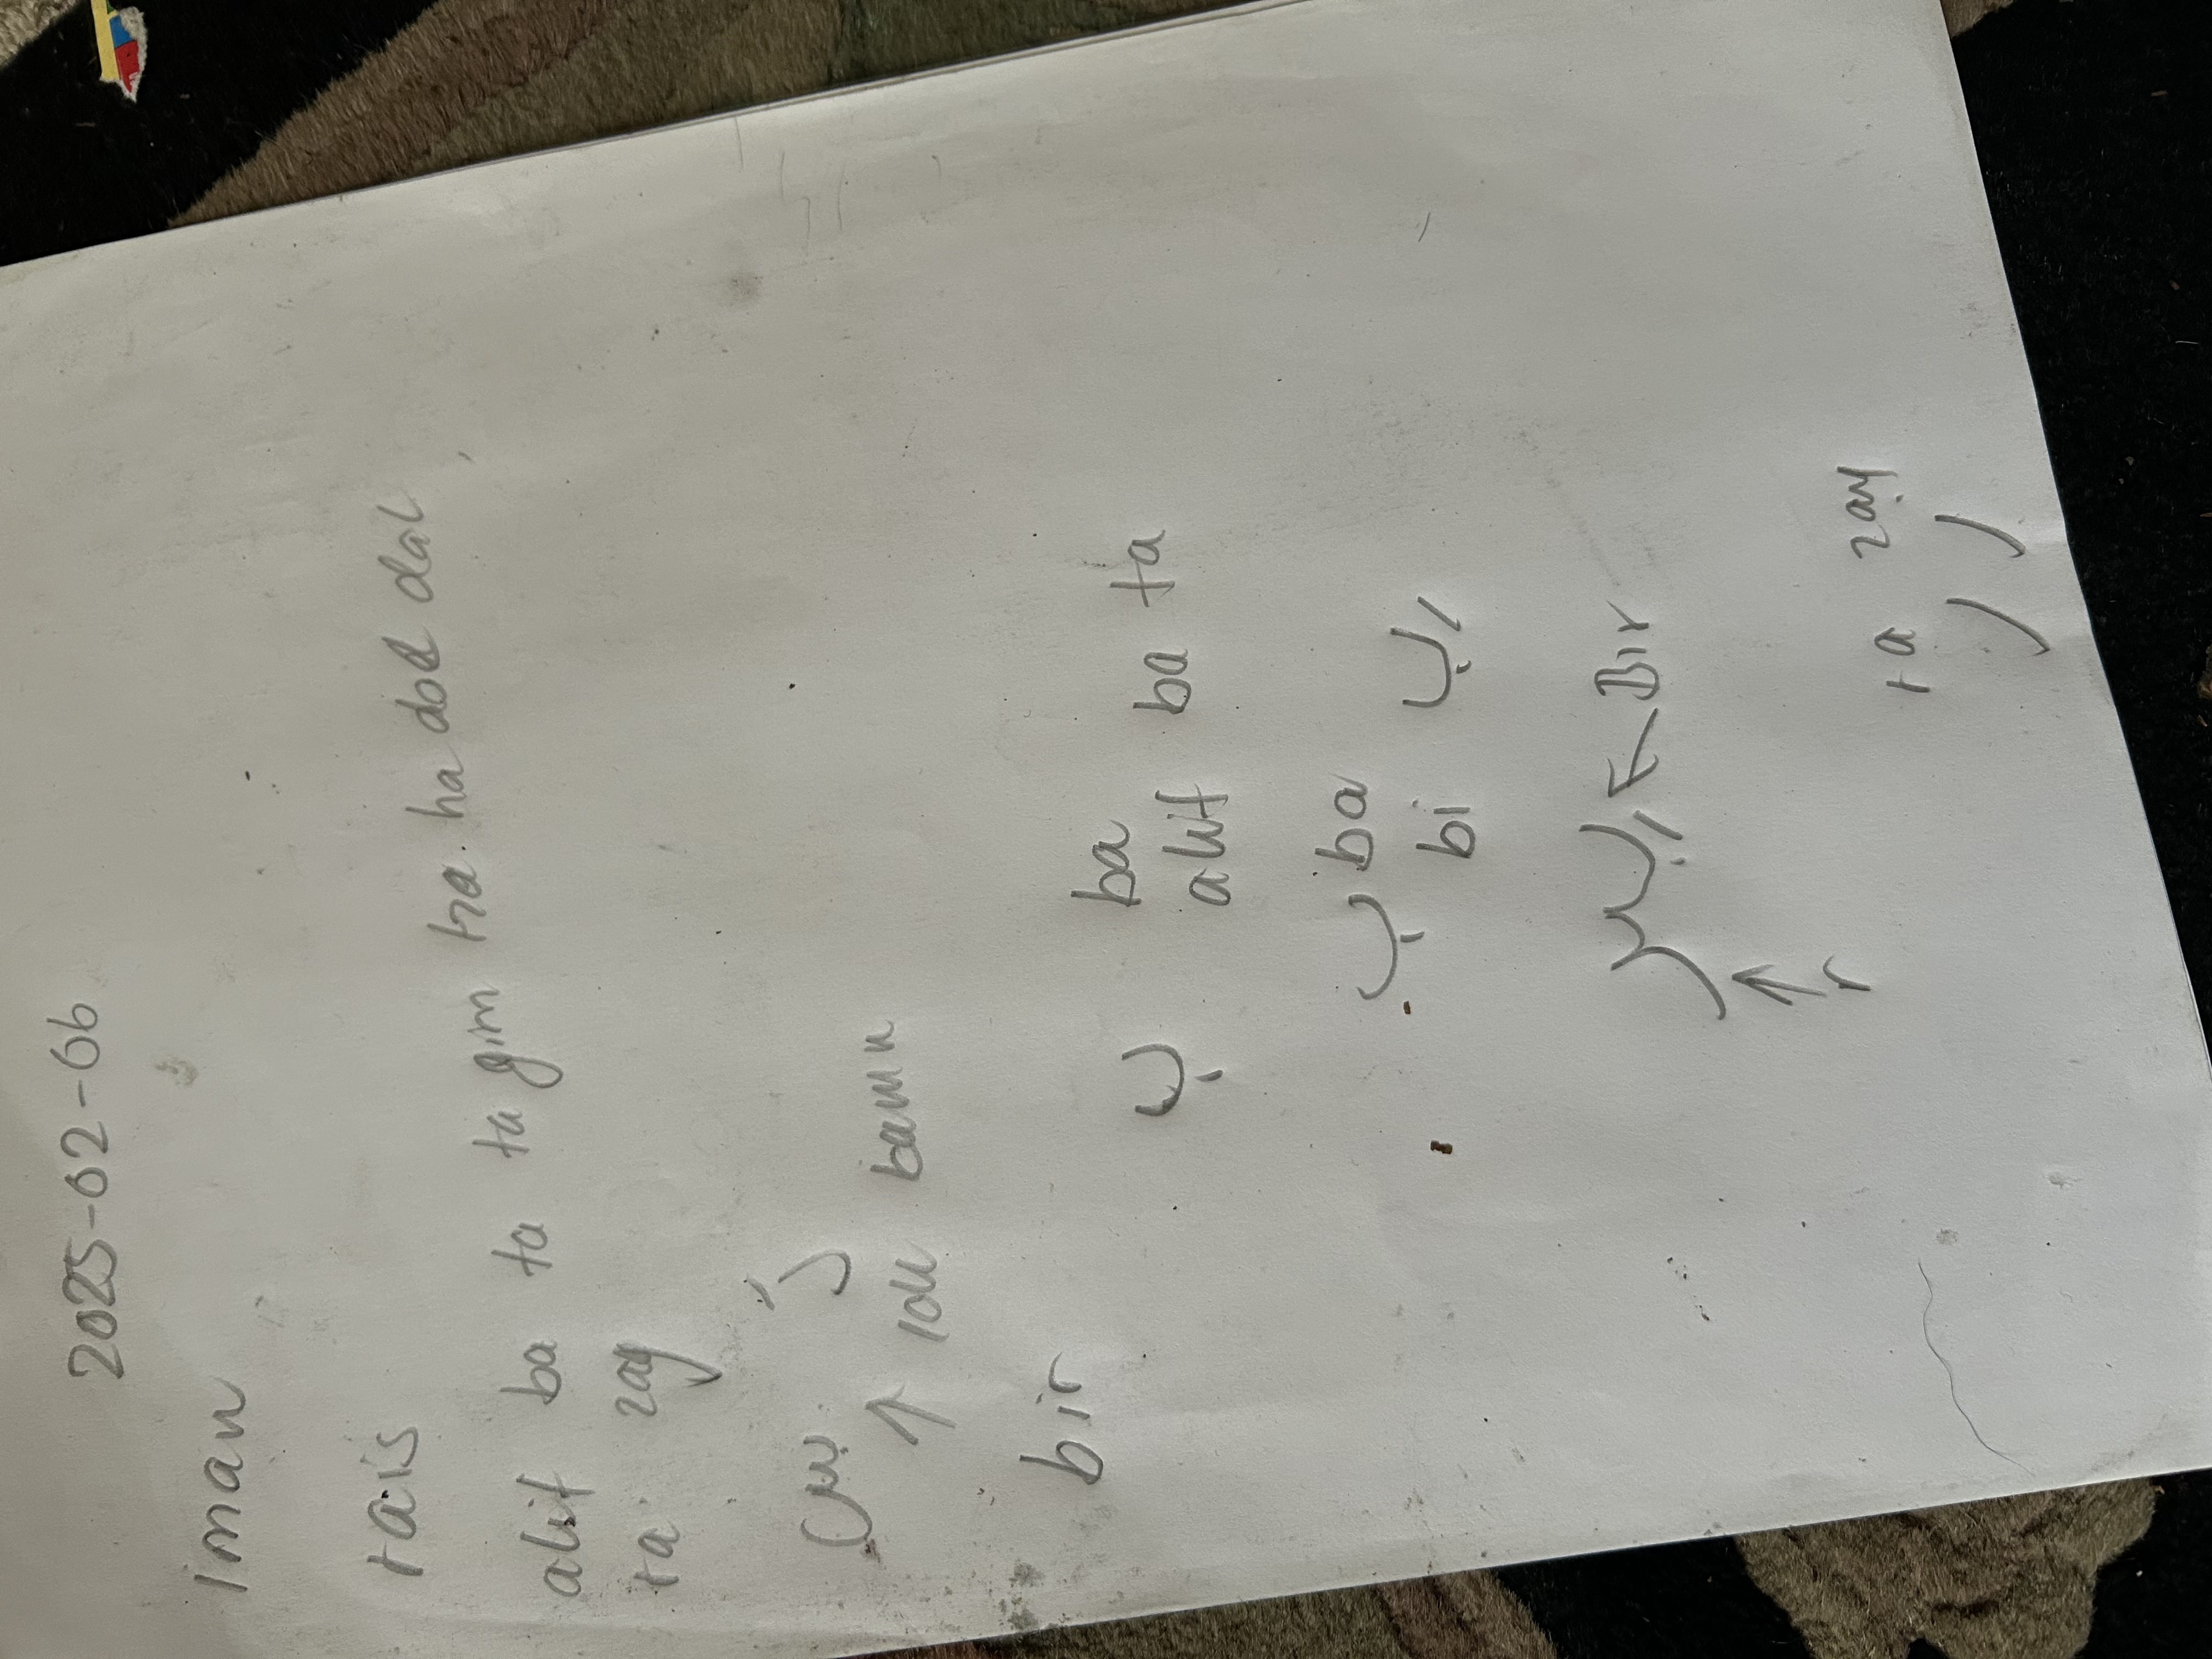 2025-02-06
iman
rais
alif ba ta ta gim ha ha dal dal
ra zay
بس زَ
bir
ب ba
alif ba ta
ب ba
bi بِ
بِسر Bir
r
ra zay
ر ز